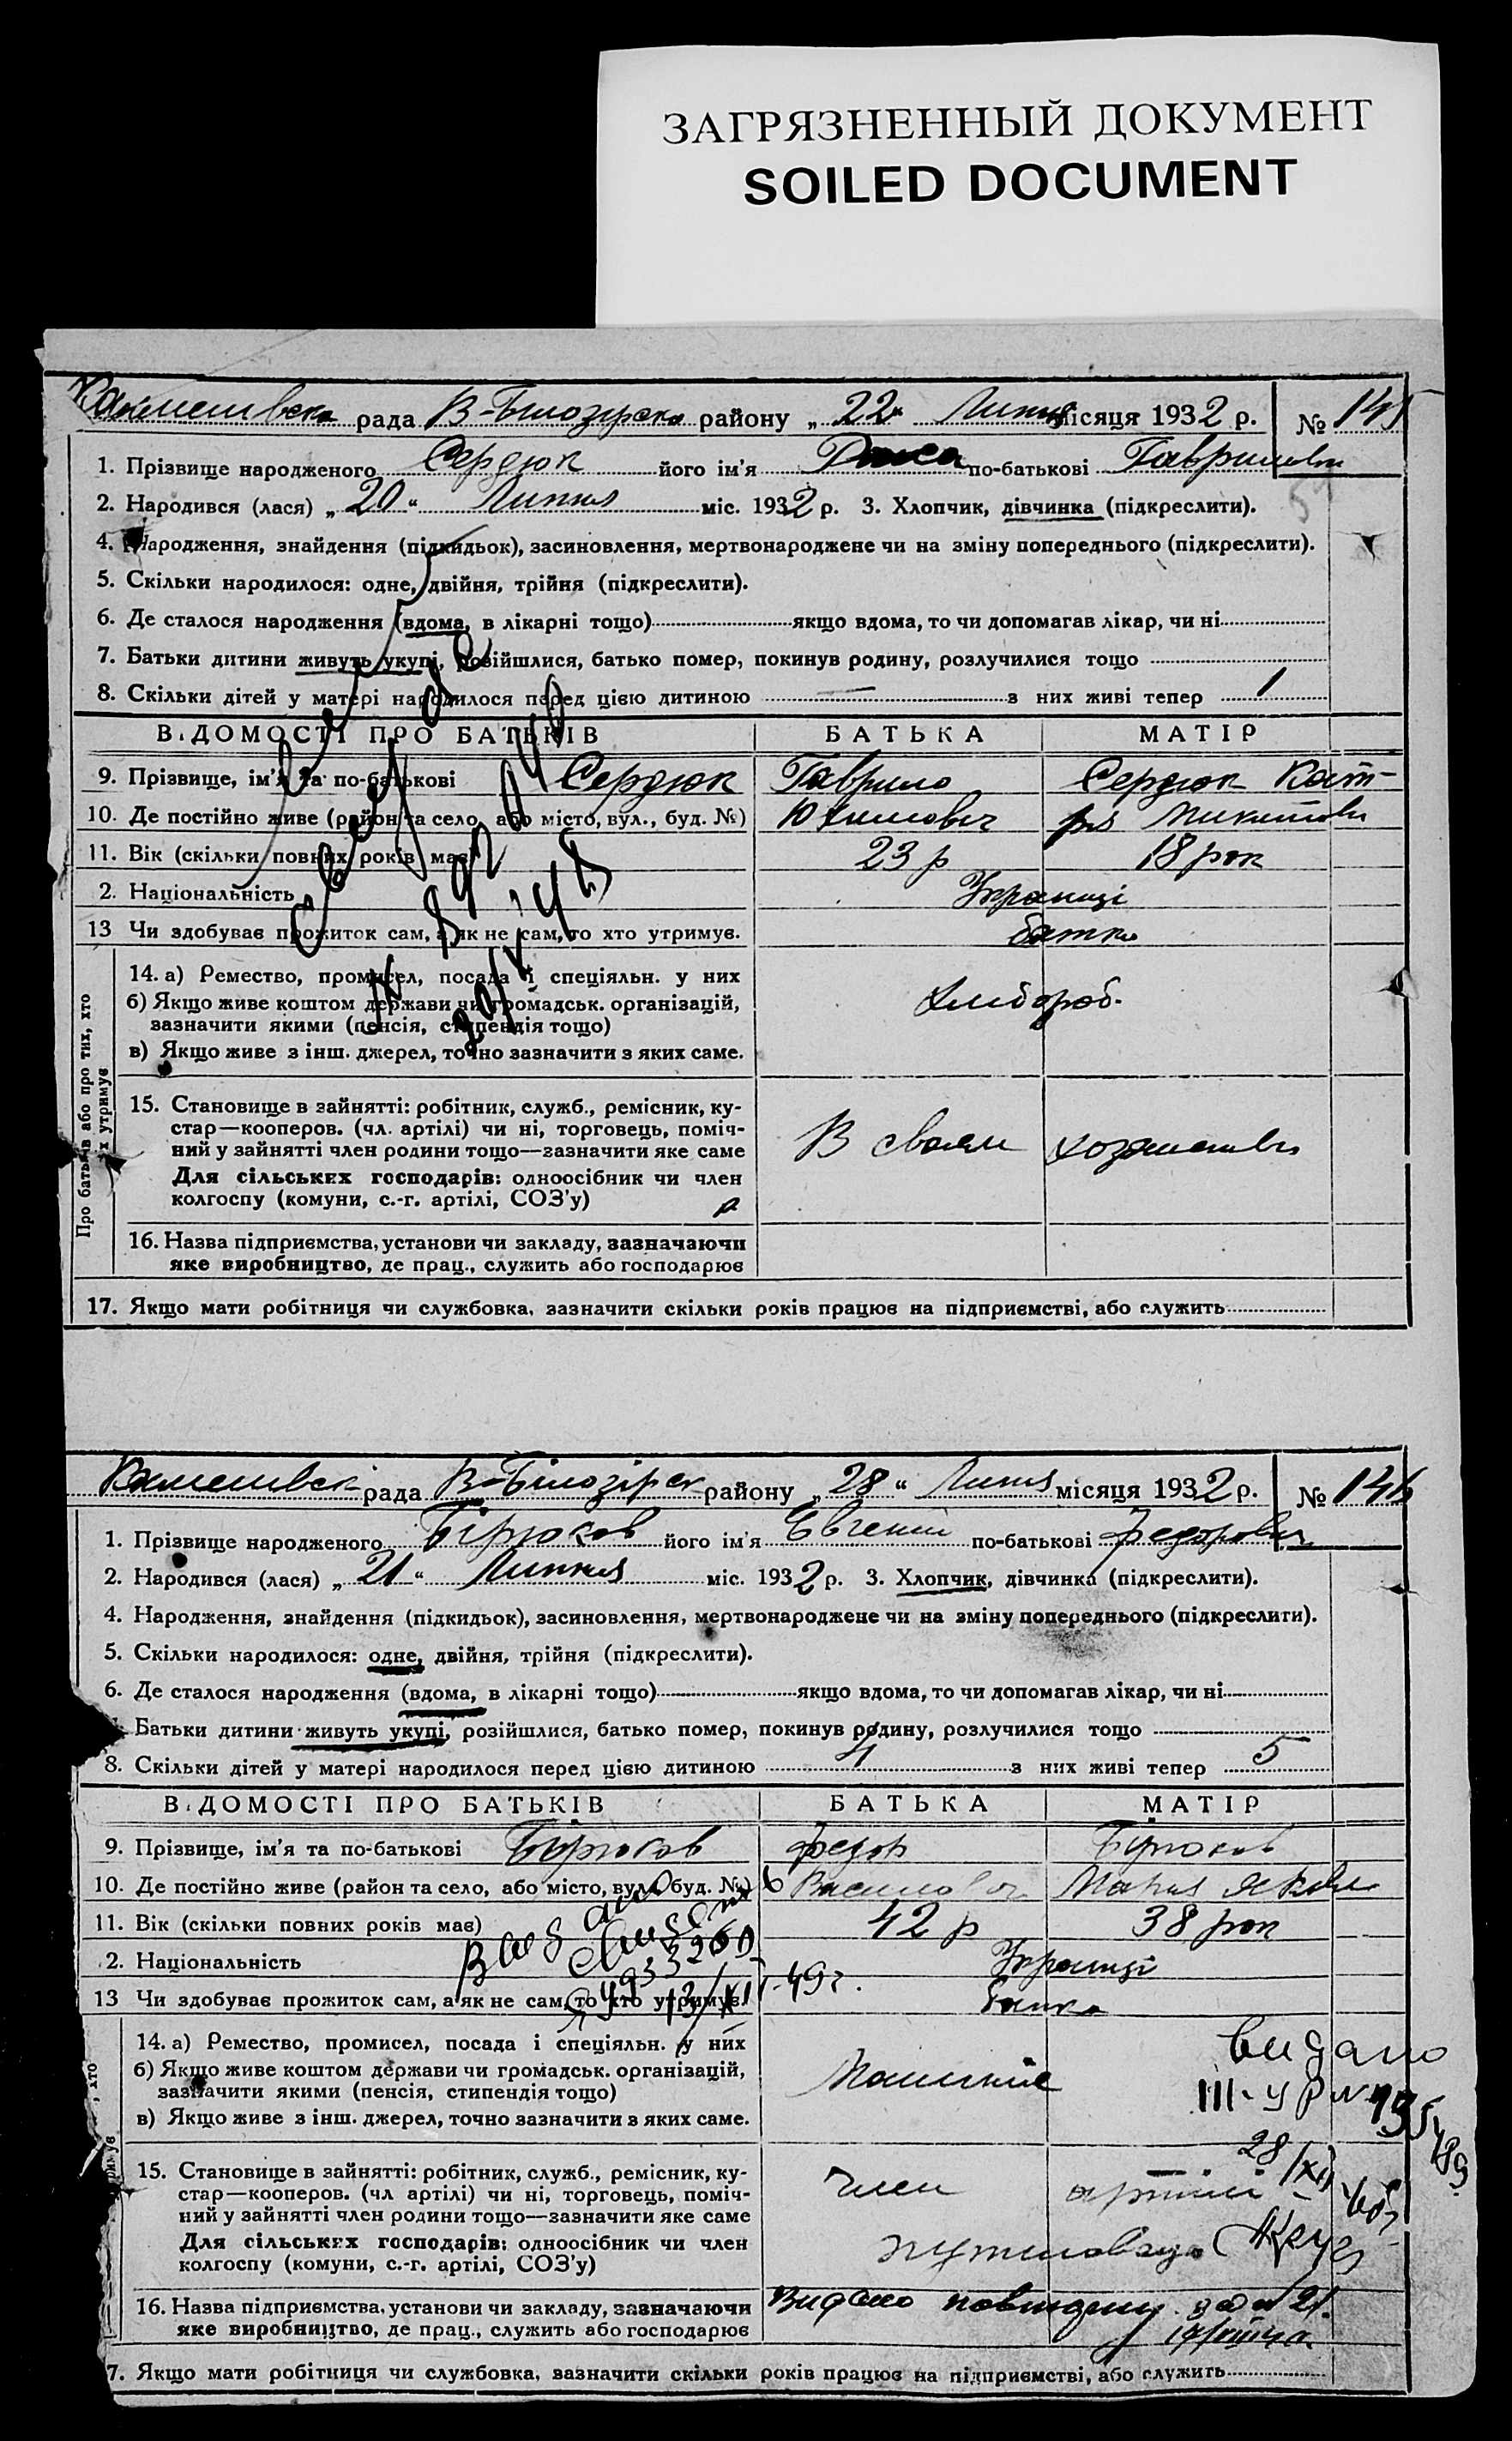 ЗАГРЯЗНЕННЫЙ ДОКУМЕНТ
SOILED DOCUMENT
рада В-Білозірсько району „ 22 “ Липня місяця 1932 р. № 145
1. Прізвище народженого Сердюк його ім'я Раиса по-батькові Гавриловн
2. Народився (лася) „ 20 “ Липня міс. 1932 р. 3. Хлопчик, дівчинка (підкреслити).
4. Народження, знайдення (підкидьок), засиновлення, мертвонароджене чи на зміну попереднього (підкреслити).
5. Скільки народилося: одне, двійня, трійня (підкреслити).
6. Де сталося народження (вдома, в лікарні тощо) якщо вдома, то чи допомагав лікар, чи ні
7. Батьки дитини живуть укупі, розійшлися, батько помер, покинув родину, розлучилися тощо
8. Скільки дітей у матері народилося перед цією дитиною — з них живі тепер 1
ВІДОМОСТІ ПРО БАТЬКІВ БАТЬКА МАТІР
9. Прізвище, ім'я та по-батькові Сердюк Гаврило Сердюк Кат-
10. Де постійно живе (район та село, або місто, вул., буд. №) Юхимович Микитовн
11. Вік (скільки повних років має) 23 р 18 рок
2. Національність Українці
13 Чи здобував прожиток сам, а як не сам, то хто утримує. батько
Про батьків або про тих, хто їх утримує
14. а) Ремество, промисел, посада і спеціяльн. у них хлібороб.
б) Якщо живе коштом держави чи громадськ. організацій,
зазначити якими (пенсія, стипендія тощо)
в) Якщо живе з інш. джерел, точно зазначити з яких саме.
15. Становище в зайнятті: робітник, служб., ремісник, ку-
стар—кооперов. (чл. артілі) чи ні, торговець, поміч-
ний у зайнятті член родини тощо—зазначити яке саме
В своєм хозяистві
Для сільських господарів: одноосібник чи член
колгоспу (комуни, с.-г. артілі, СОЗ'у)
16. Назва підприємства, установи чи закладу, зазначаючи
яке виробництво, де прац., служить або господарює
17. Якщо мати робітниця чи службовка, зазначити скільки років працює на підприємстві, або служить
рада В-Білозірськ району „ 28 “ Липня місяця 1932 р. № 146
1. Прізвище народженого Бірюков його ім'я Євгений по-батькові Федорович
2. Народився (лася) „ 21 “ Липня міс. 1932 р. 3. Хлопчик, дівчинка (підкреслити).
4. Народження, знайдення (підкидьок), засиновлення, мертвонароджене чи на зміну попереднього (підкреслити).
5. Скільки народилося: одне, двійня, трійня (підкреслити).
6. Де сталося народження (вдома, в лікарні тощо) якщо вдома, то чи допомагав лікар, чи ні
Батьки дитини живуть укупі, розійшлися, батько помер, покинув родину, розлучилися тощо
8. Скільки дітей у матері народилося перед цією дитиною 4 з них живі тепер 5
ВІДОМОСТІ ПРО БАТЬКІВ БАТЬКА МАТІР
9. Прізвище, ім'я та по-батькові Бірюков Федор Бірюков
10. Де постійно живе (район та село, або місто, вул., буд. №) Василович Мария Яковл
11. Вік (скільки повних років має) 42 р 38 рок
2. Національність Українці
13 Чи здобував прожиток сам, а як не сам, то хто утримує. 13/XII-49г. батько
14. а) Ремество, промисел, посада і спеціяльн. у них
б) Якщо живе коштом держави чи громадськ. організацій,
зазначити якими (пенсія, стипендія тощо)
в) Якщо живе з інш. джерел, точно зазначити з яких саме.
видано
28/XII
15. Становище в зайнятті: робітник, служб., ремісник, ку-
стар—кооперов. (чл артілі) чи ні, торговець, поміч-
ний у зайнятті член родини тощо—зазначити яке саме
член артілі
Для сільських господарів: одноосібник чи член
колгоспу (комуни, с.-г. артілі, СОЗ'у)
16. Назва підприємства, установи чи закладу, зазначаючи
яке виробництво, де прац., служить або господарює
Видано
7. Якщо мати робітниця чи службовка, зазначити скільки років працює на підприємстві, або служить